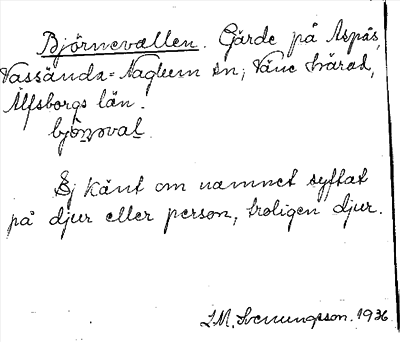 Björnevallen. Gärde på Aspås,
Vassända-Naglum sn, Väne härad,
Älfsborgs län.
Ej känt om namnet syftat
på djur eller person, troligen djur.
1936